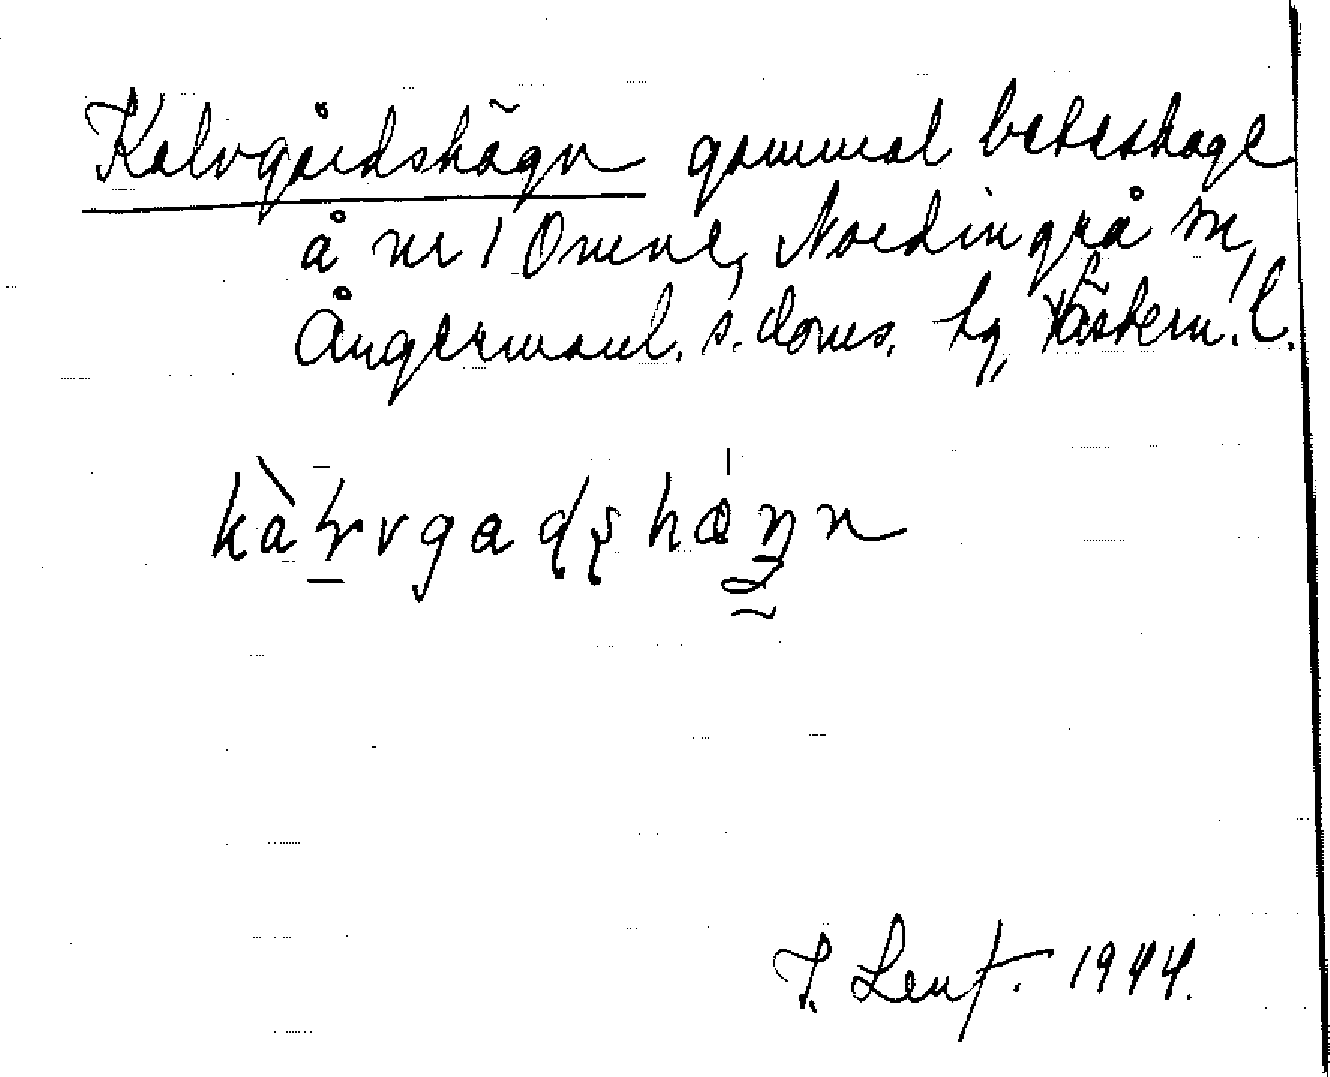 Kalvgårdshägn gammal beteshage
å nr 1 Omne, Nordingrå sn,
Ångermanl. s. doms. hg, Västern. l.
kàlvgadshǽŋn
1944.